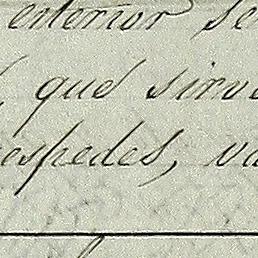 exterior se
que sirve
ospedes, va